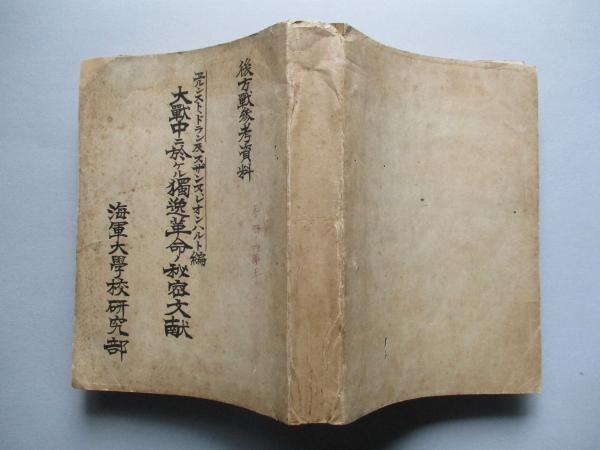 後方戰參考資料
エルンスト、ドラン及スザンヌ、レオンハルト編
大戰中ニ於ケル獨逸革命ノ秘密文献
海軍大學校研究部